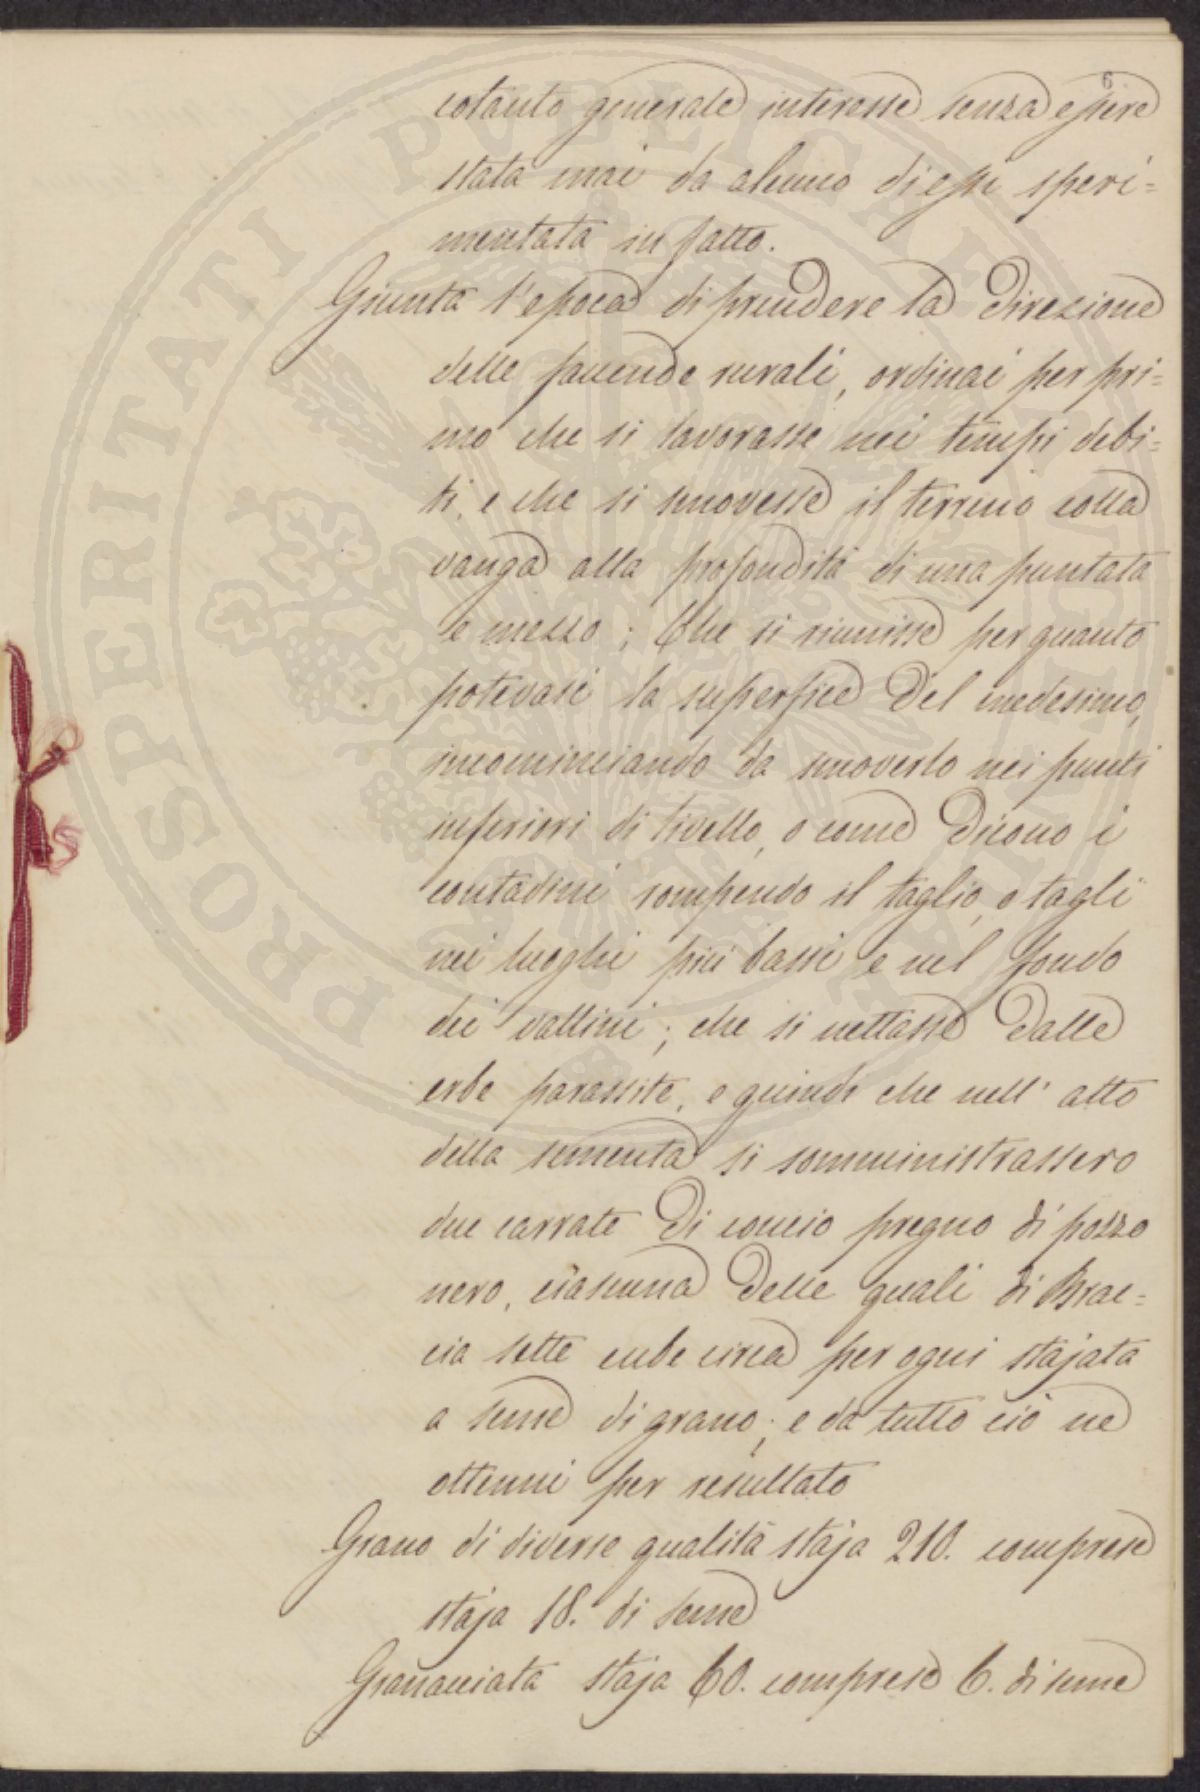 6.
cotanto generale interesse senza essere
stata mai da alcuno di essi speri=
mentata in fatto.
Giunta l'epoca di prendere la direzione
delle faccende rurali, ordinai per pri=
mo che si lavorasse nei tempi debi=
ti, e che si smovesse il terreno colla
vanga alla profondità di una puntata
e mezzo; Che si riunisse per quanto
potevasi la superfice del medesimo,
incominciando da smoverlo nei punti
inferiori di livello, o come dicono i
contadini rompendo il taglio, o tagli
nei luoghi più bassi e nel fondo
dei vallini; che si nettasse dalle
erbe parassite, e quindi che nell' atto
della sementa si somministrassero
due carrate di concio pregno di pozzo
nero, ciascuna delle quali di Brac=
cia sette cube circa per ogni stajata
a seme di grano; e da tutto ciò ne
ottenni per resultato
Grano di diverse qualità staja 210. comprese
staja 18. di seme
Granacciata staja 60. comprese 6. di seme
PROSPERITATI PUBLICAE